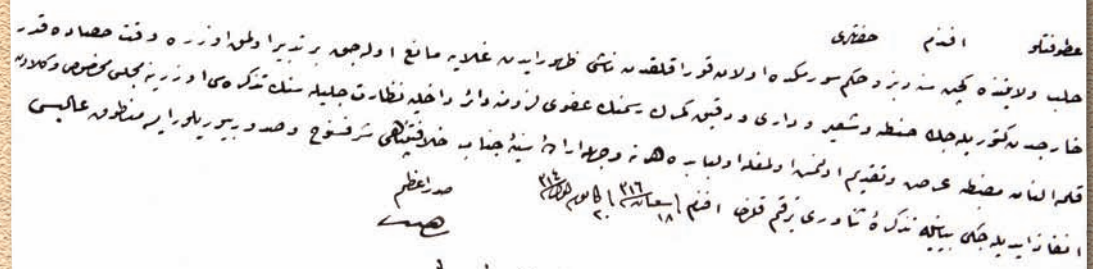 عطوفتلو افندم حضرتلری
حلب ولایتنده كچن سنه دنبرو حكم سورمكده اولان قوراقلقدن ناشی ظهور ایدن غلایه مانع اوله جق بر تدبیر اولمق اوزره وقت حصاده قدر
خارجدن كتوریله جك حنطه وشعیر و داری و دقیق كمرك رسمنك عفوی لزومنه دائر داخلیه نظارت جلیله سنك تذكره سی اوزرینه مجلس مخصوص وكلادن
قلمه النان مضبطه عرض وتقدیم اولنمش اولمغله اولبابده هر نه وجهله اراده سنیه جناب خلافتپناهی شرفسنوح وصدور بیوریلور ایسه منطوق عالیسی
انفاذ ایدیله جكی بیانیله تذكره ثناوری ترقیم قلندی افندم فی ١٨ شعبان ٣١٦ فی ٢٠ كانون اول ٣١٤
صدر اعظم